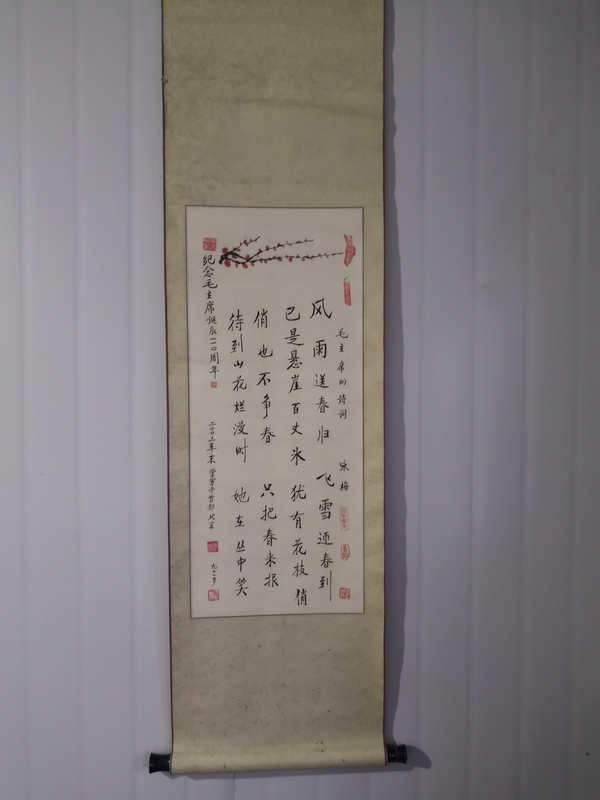 毛主席的诗词 咏梅
风雨送春归 飞雪迎春到
已是悬崖百丈冰 犹有花枝俏
俏也不争春 只把春来报
待到山花烂漫时 她在丛中笑
纪念毛主席诞辰一一〇周年
二〇〇三年 于首都北京
九十一岁